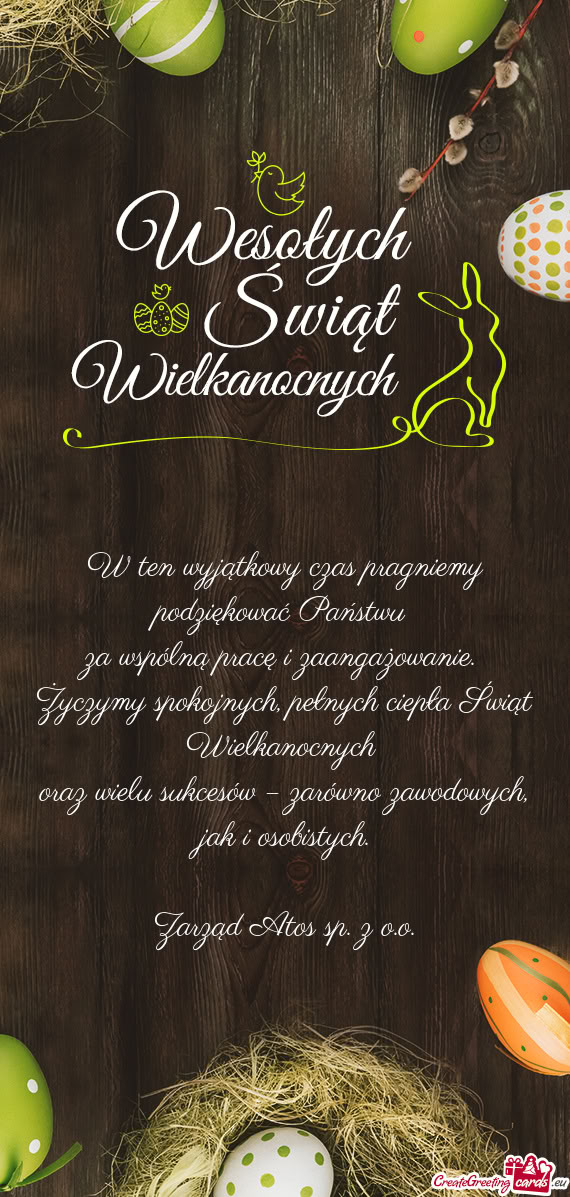 Wesołych
Świąt
Wielkanocnych
W ten wyjątkowy czas pragniemy
podziękować Państwu
za wspólną pracę i zaangażowanie.
Życzymy spokojnych, pełnych ciepła Świąt
Wielkanocnych
oraz wielu sukcesów – zarówno zawodowych,
jak i osobistych.
Zarząd Atos sp. z o.o.
CreateGreeting cards .eu